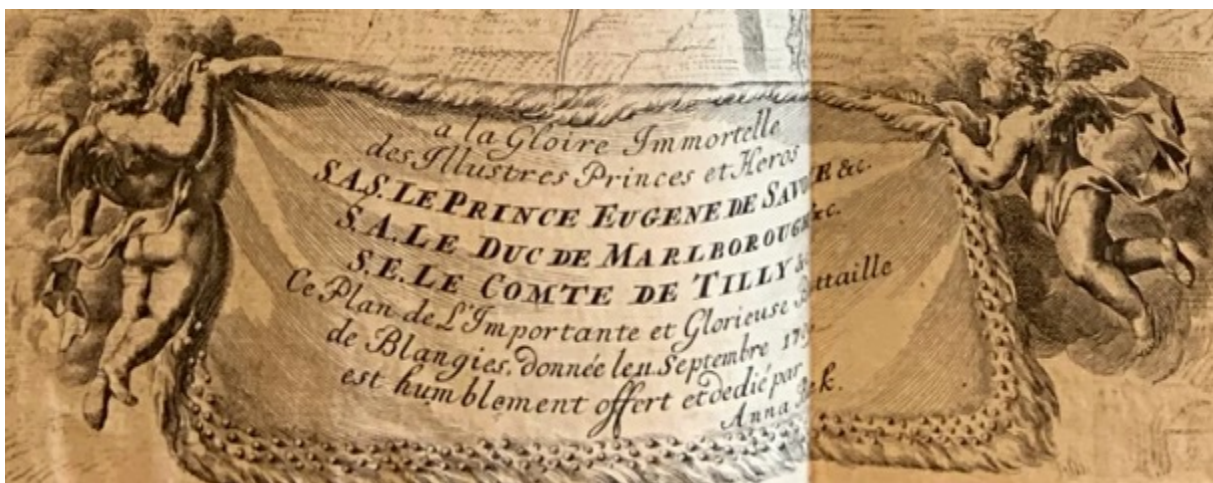 a la Gloire Immortelle
des Illustres Princes et Heros
S.A.S. LE PRINCE EUGENE DE SAVOIE &c.
S.A. LE DUC DE MARLBOROUGH &c.
S.E. LE COMTE DE TILLY &c
Ce Plan de L'Importante et Glorieuse Battaille
de Blangies, donnée le 11. Septembre
est humblement offert et dedié par
Anna